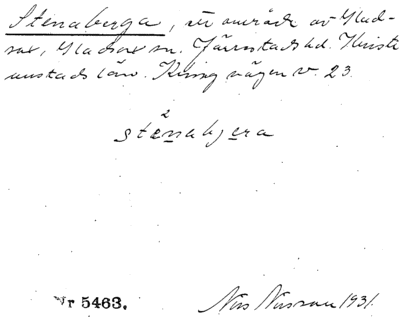 Stenaberga, ett område av Glad-
sax, Gladsax sn. Järrestads hd. Kristi-
anstads län. Kring vägen v. 23.
2
stẹnabjẹra
Nr 5463. Nils Nilsson 1931.